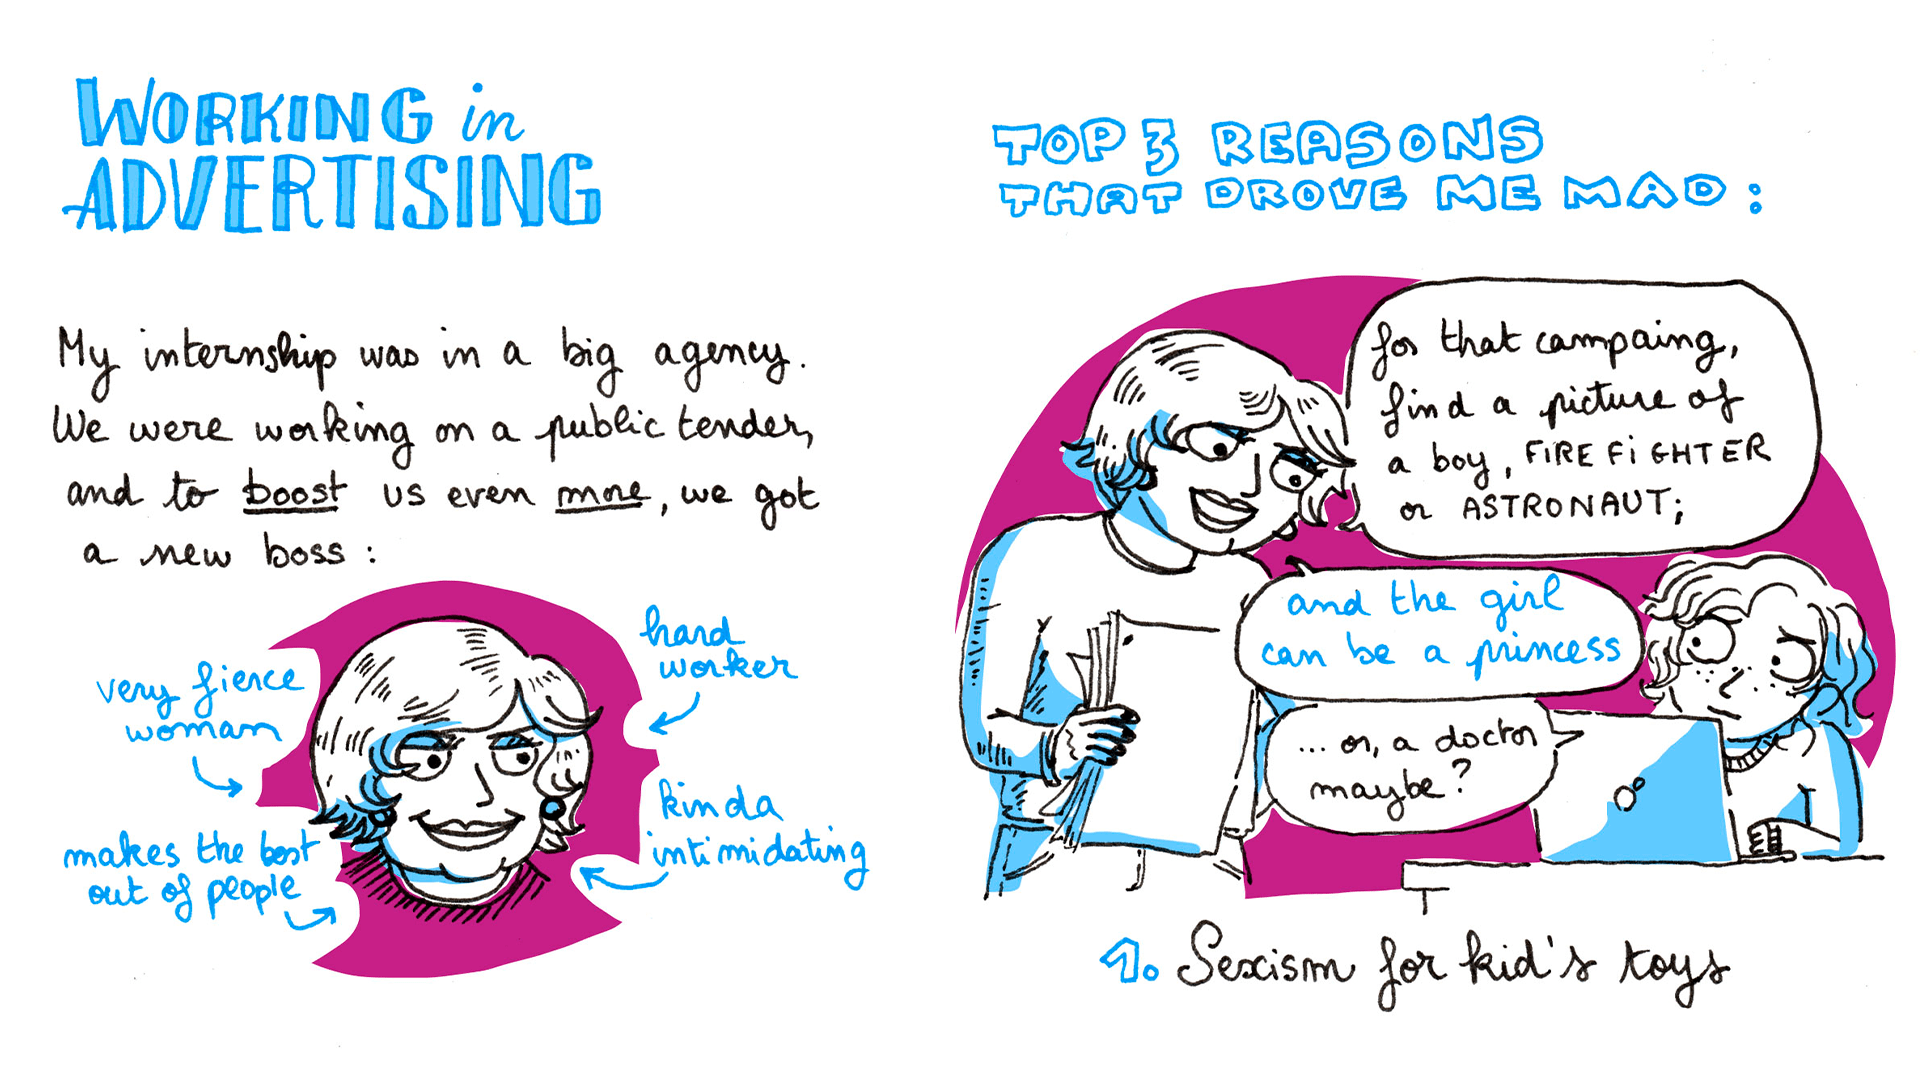 WORKING in
ADVERTISING
My internship was in a big agency.
We were working on a public tender,
and to boost us even more, we got
a new boss :
very fierce
woman
hard
worker
makes the best
out of people
kinda
intimidating
TOP 3 REASONS
THAT DROVE ME MAD :
for that campaing,
find a picture of
a boy, FIREFIGHTER
or ASTRONAUT;
and the girl
can be a princess
... or, a doctor
maybe?
1. Sexism for kid's toys